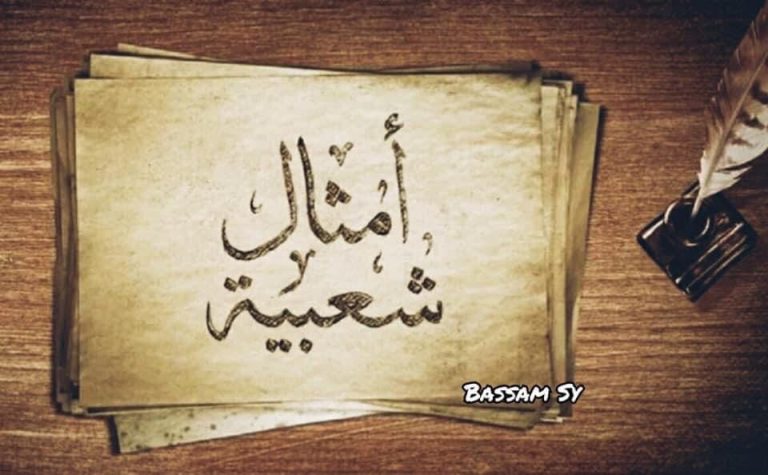 أمثال
شعبية
Bassam Sy